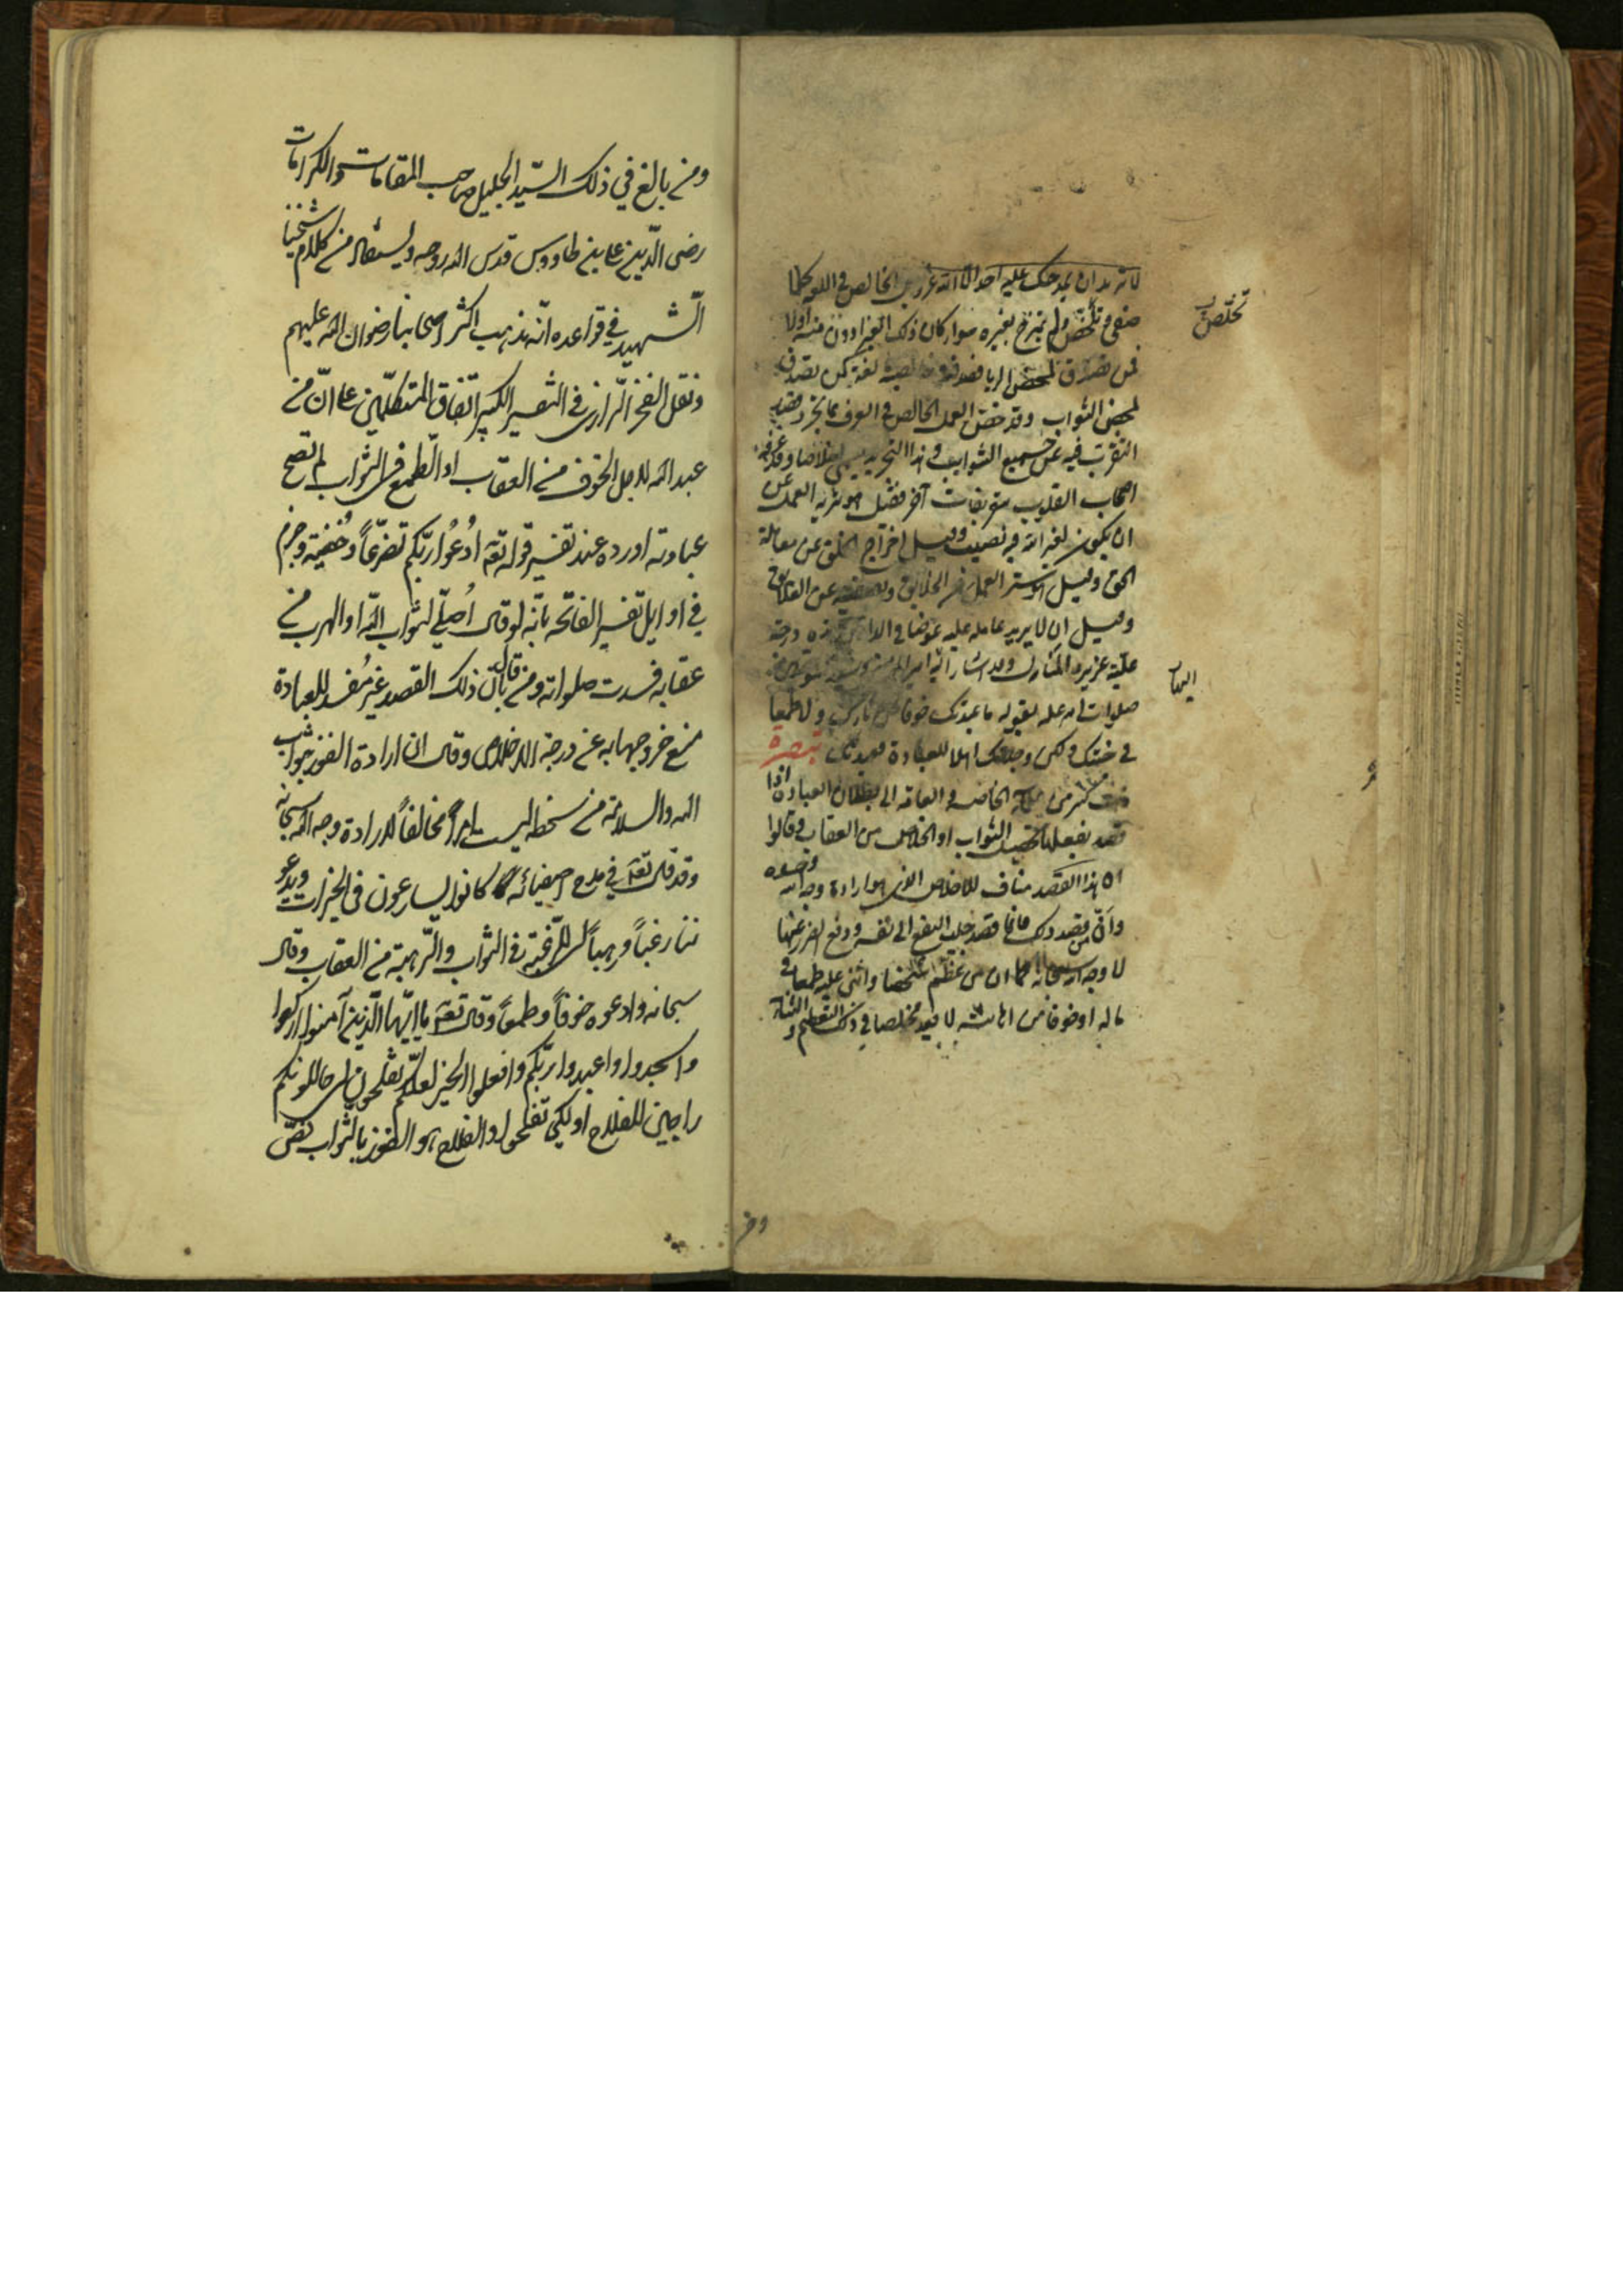 لا تريد ان يمدحك عليه احد الا الله عز وجل الخالص في اللغة كلما
صفي وتلخص ولم يمتزج بغيره سواء كان ذلك الغير ادون منه اولا
فمن تصدق لمحض الريا فصدقته خالصة لغة كمن تصدق
لمحض الثواب وقد خص العمل الخالص في العرف بما تجرد قصد
التقرب فيه عن جميع الشوايب وهذا التجريد يسمى اخلاصا وقد عرفه
اصحاب القلوب بتعريفات آخر فقيل هو تنزيه العمل عن
ان يكون لغير الله فيه نصيب وقيل اخراج الخلق عن معاملة
الحق وقيل هو ستر العمل عن الخلايق وتصفيته عن العلايق
وقيل ان لا يريد عامله عليه عوضا في الدارين وهذه درجة
علية عزيزة المنال وقد اشار اليها امير المؤمنين وسيد الموحدين
صلوات الله عليه بقوله ما عبدتك خوفا من نارك ولا طمعا
في جنتك ولكن وجدتك اهلا للعبادة فعبدتك تبصرة
ذهب كثير من علماء الخاصة والعامة الى بطلان العبادة اذا
قصد بفعلها تحصيل الثواب او الخلاص من العقاب وقالوا
ان هذا القصد مناف للاخلاص الذي هو ارادة وجه الله وحده
وان من قصد ذلك فانما قصد جلب النفع الى نفسه ودفع الضرر عنها
لا وجه الله سبحانه كما ان من عظم شخصا واثنى عليه طمعا في
ماله او خوفا من اهانته لا يعد مخلصا في ذلك التعظيم والثناء
تخلص
اليها
ومن
ومن بالغ في ذلك السيد الجليل صاحب المقامات والكرامات
رضى الدين على بن طاووس قدس الله روحه ويستفاد من كلام شيخنا
الشهيد في قواعده انه مذهب اكثر اصحابنا رضوان الله عليهم
ونقل الفخر الرازى في التفسير الكبير اتفاق المتكلمين على ان من
عبد الله لاجل الخوف من العقاب او الطمع في الثواب لم تصح
عبادته اورده عند تفسير قوله تعه اُدعُوا ربّكم تضرّعاً وخُفية وجزم
في اوايل تفسير الفاتحه بانه لو قال اُصلّي لثواب الله او الهرب من
عقابه فسدت صلواته ومن قال بانّ ذلك القصد غير مُفسد للعبادة
منع خروجها به عن درجة الاخلاص وقال ان ارادة الفوز بثواب
الله والسلامة من سخطه ليست امراً مخالفاً لارادة وجه الله سبحانه
وقد قال تعه في مدح اصفيائه كانوا يسارعون في الخيرات ويدعو
ننا رغباً ورهباً اى للرغبة في الثواب والرهبة من العقاب وقال
سبحانه وادعوه خوفاً وطمعاً وقال تعه يا ايّها الّذين آمنوا اركعوا
واسجدوا واعبدوا ربّكم وافعلوا الخير لعلّكم تفلحون اى حال كونكم
راجين للفلاح او لكي تفلحوا والفلاح هو الفوز بالثواب نصّ